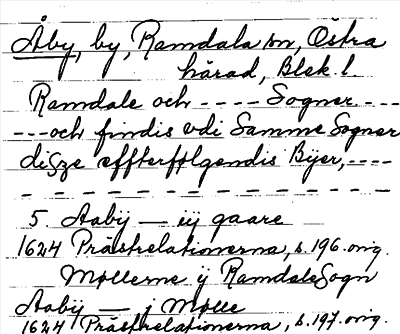 Åby, by, Ramdala sn, Östra
härad, Blek. l.
Ramdale och ---- Sogner ---
---och findis vdi Samme Sogner
disze effterfølgendis Bÿer, ----
- - - - - - - - - - - - - - - -
5. Aabÿ — iij gaare
1624 Prästrelationerna, s. 196. orig.
Møllerne ÿ Ramdale Sogn
Aabÿ — j Mølle
1624 Prästrelationerna, s. 197. orig.